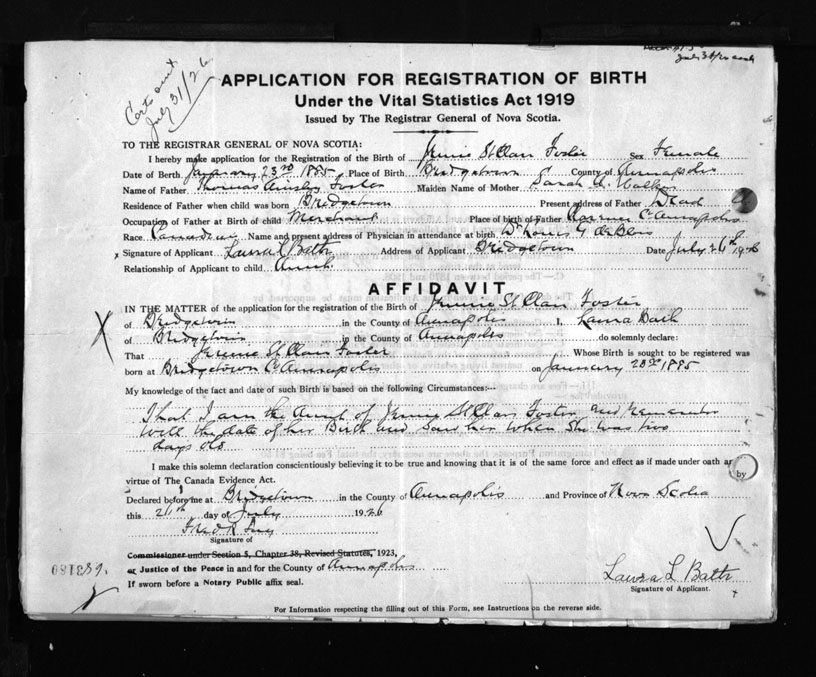 July 31/26
APPLICATION FOR REGISTRATION OF BIRTH
Under the Vital Statistics Act 1919
Issued by The Registrar General of Nova Scotia.
TO THE REGISTRAR GENERAL OF NOVA SCOTIA:
I hereby make application for the Registration of the Birth of Jennie St Clair Foster Sex Female
Date of Birth January 23rd 1885 Place of Birth Bridgetown County of Annapolis
Name of Father Thomas Foster Maiden Name of Mother Sarah A. Walker
Residence of Father when child was born Bridgetown Present address of Father Dead
Occupation of Father at Birth of child Merchant Place of birth of Father Co Annapolis
Race Canadian Name and present address of Physician in attendance at birth Dr Louis G de Blois
x Signature of Applicant Laura L Address of Applicant Bridgetown Date July 26th 1926
Relationship of Applicant to child Aunt
AFFIDAVIT
IN THE MATTER of the application for the registration of the Birth of Jennie St Clair Foster
X of Bridgetown in the County of Annapolis I, Laura
of Bridgetown in the County of Annapolis do solemnly declare:
That Jennie St Clair Foster Whose Birth is sought to be registered was
born at Bridgetown Co Annapolis on January 23rd 1885
My knowledge of the fact and date of such Birth is based on the following Circumstances:--
That I am the Aunt of Jennie St Clair Foster and remember
well the date of her Birth and saw her when she was two
days old
I make this solemn declaration conscientiously believing it to be true and knowing that it is of the same force and effect as if made under oath
by
virtue of The Canada Evidence Act.
Declared before me at Bridgetown in the County of Annapolis and Province of Nova Scotia
this 26th day of July 1926
Fred R
Signature of
Commissioner under Section 5, Chapter 38, Revised Statutes, 1923,
or Justice of the Peace in and for the County of Annapolis
If sworn before a Notary Public affix seal.
Laura L
Signature of Applicant.
For Information respecting the filling out of this Form, see Instructions on the reverse side.